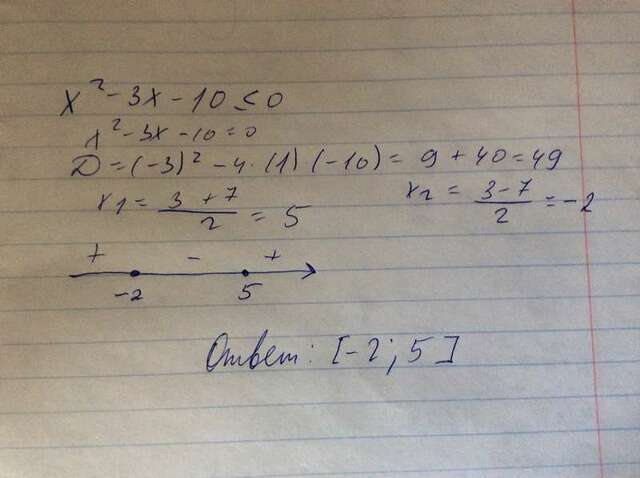 x² - 3x - 10 ≤ 0
x² - 3x - 10 = 0
D = (-3)² - 4 · (1) (-10) = 9 + 40 = 49
x₁ = (3 + 7)/2 = 5   x₂ = (3 - 7)/2 = -2
+ - +
-2 5
Ответ: [-2; 5]